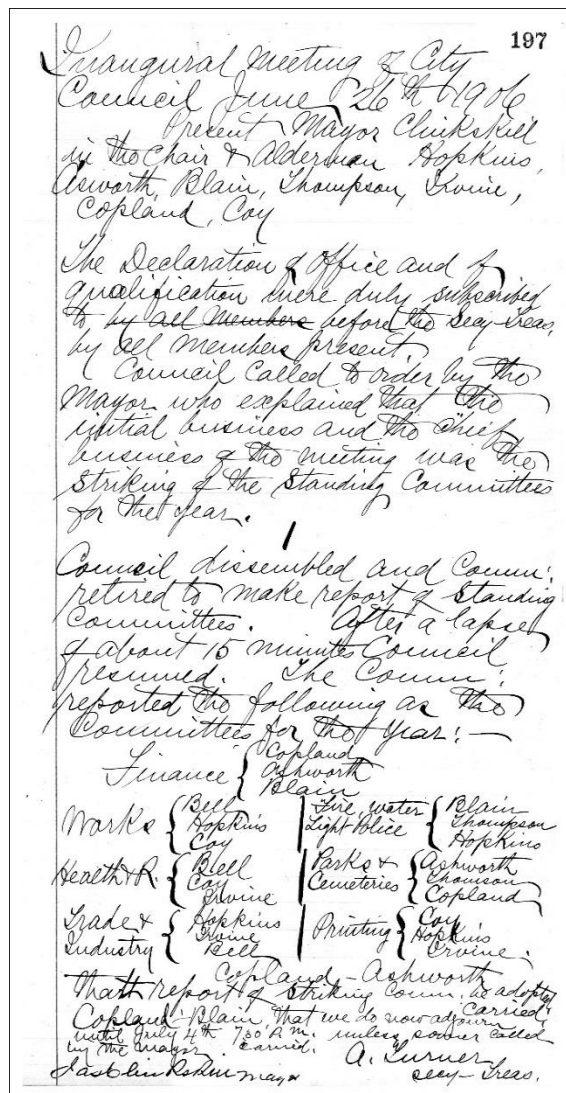 197
Inaugural Meeting of City
Council June 26th 1906
Present Mayor Clinkskill
in the Chair & Alderman Hopkins,
Asworth, Blain, Thompson, Irvine,
Copland, Coy
The Declaration of Office and of
qualification were duly subscribed
to by all Members before the Secy-Treas,
by all members present.
Council called to order by the
Mayor who explained that the
initial business and the chief
business of the meeting was the
striking of the Standing Committees
for the year.
Council dissembled and Comm:
retired to make report of Standing
Committees. After a lapse
of about 15 minutes Council
resumed. The Comm:
reported the following as the
Committees for the Year:—
Finance { Copland
Ashworth
Blain
Works { Bell
Hopkins
Coy
Fire, water
Light Police { Blain
Thompson
Hopkins
Health & R. { Bell
Coy
Irvine
Parks &
Cemeteries { Ashworth
Thomson
Copland
Trade &
Industry { Hopkins
Irvine
Bell
Printing { Coy
Hopkins
Irvine.
Copland – Ashworth
That report of Striking Comm. be adopted
Carried.
Copland – Blain, That we do now adjourn
until July 4th 7.30 P.M. unless sooner called
by the Mayor. Carried.
Jas Clinkskill Mayor
A. Turner
Secy-Treas.